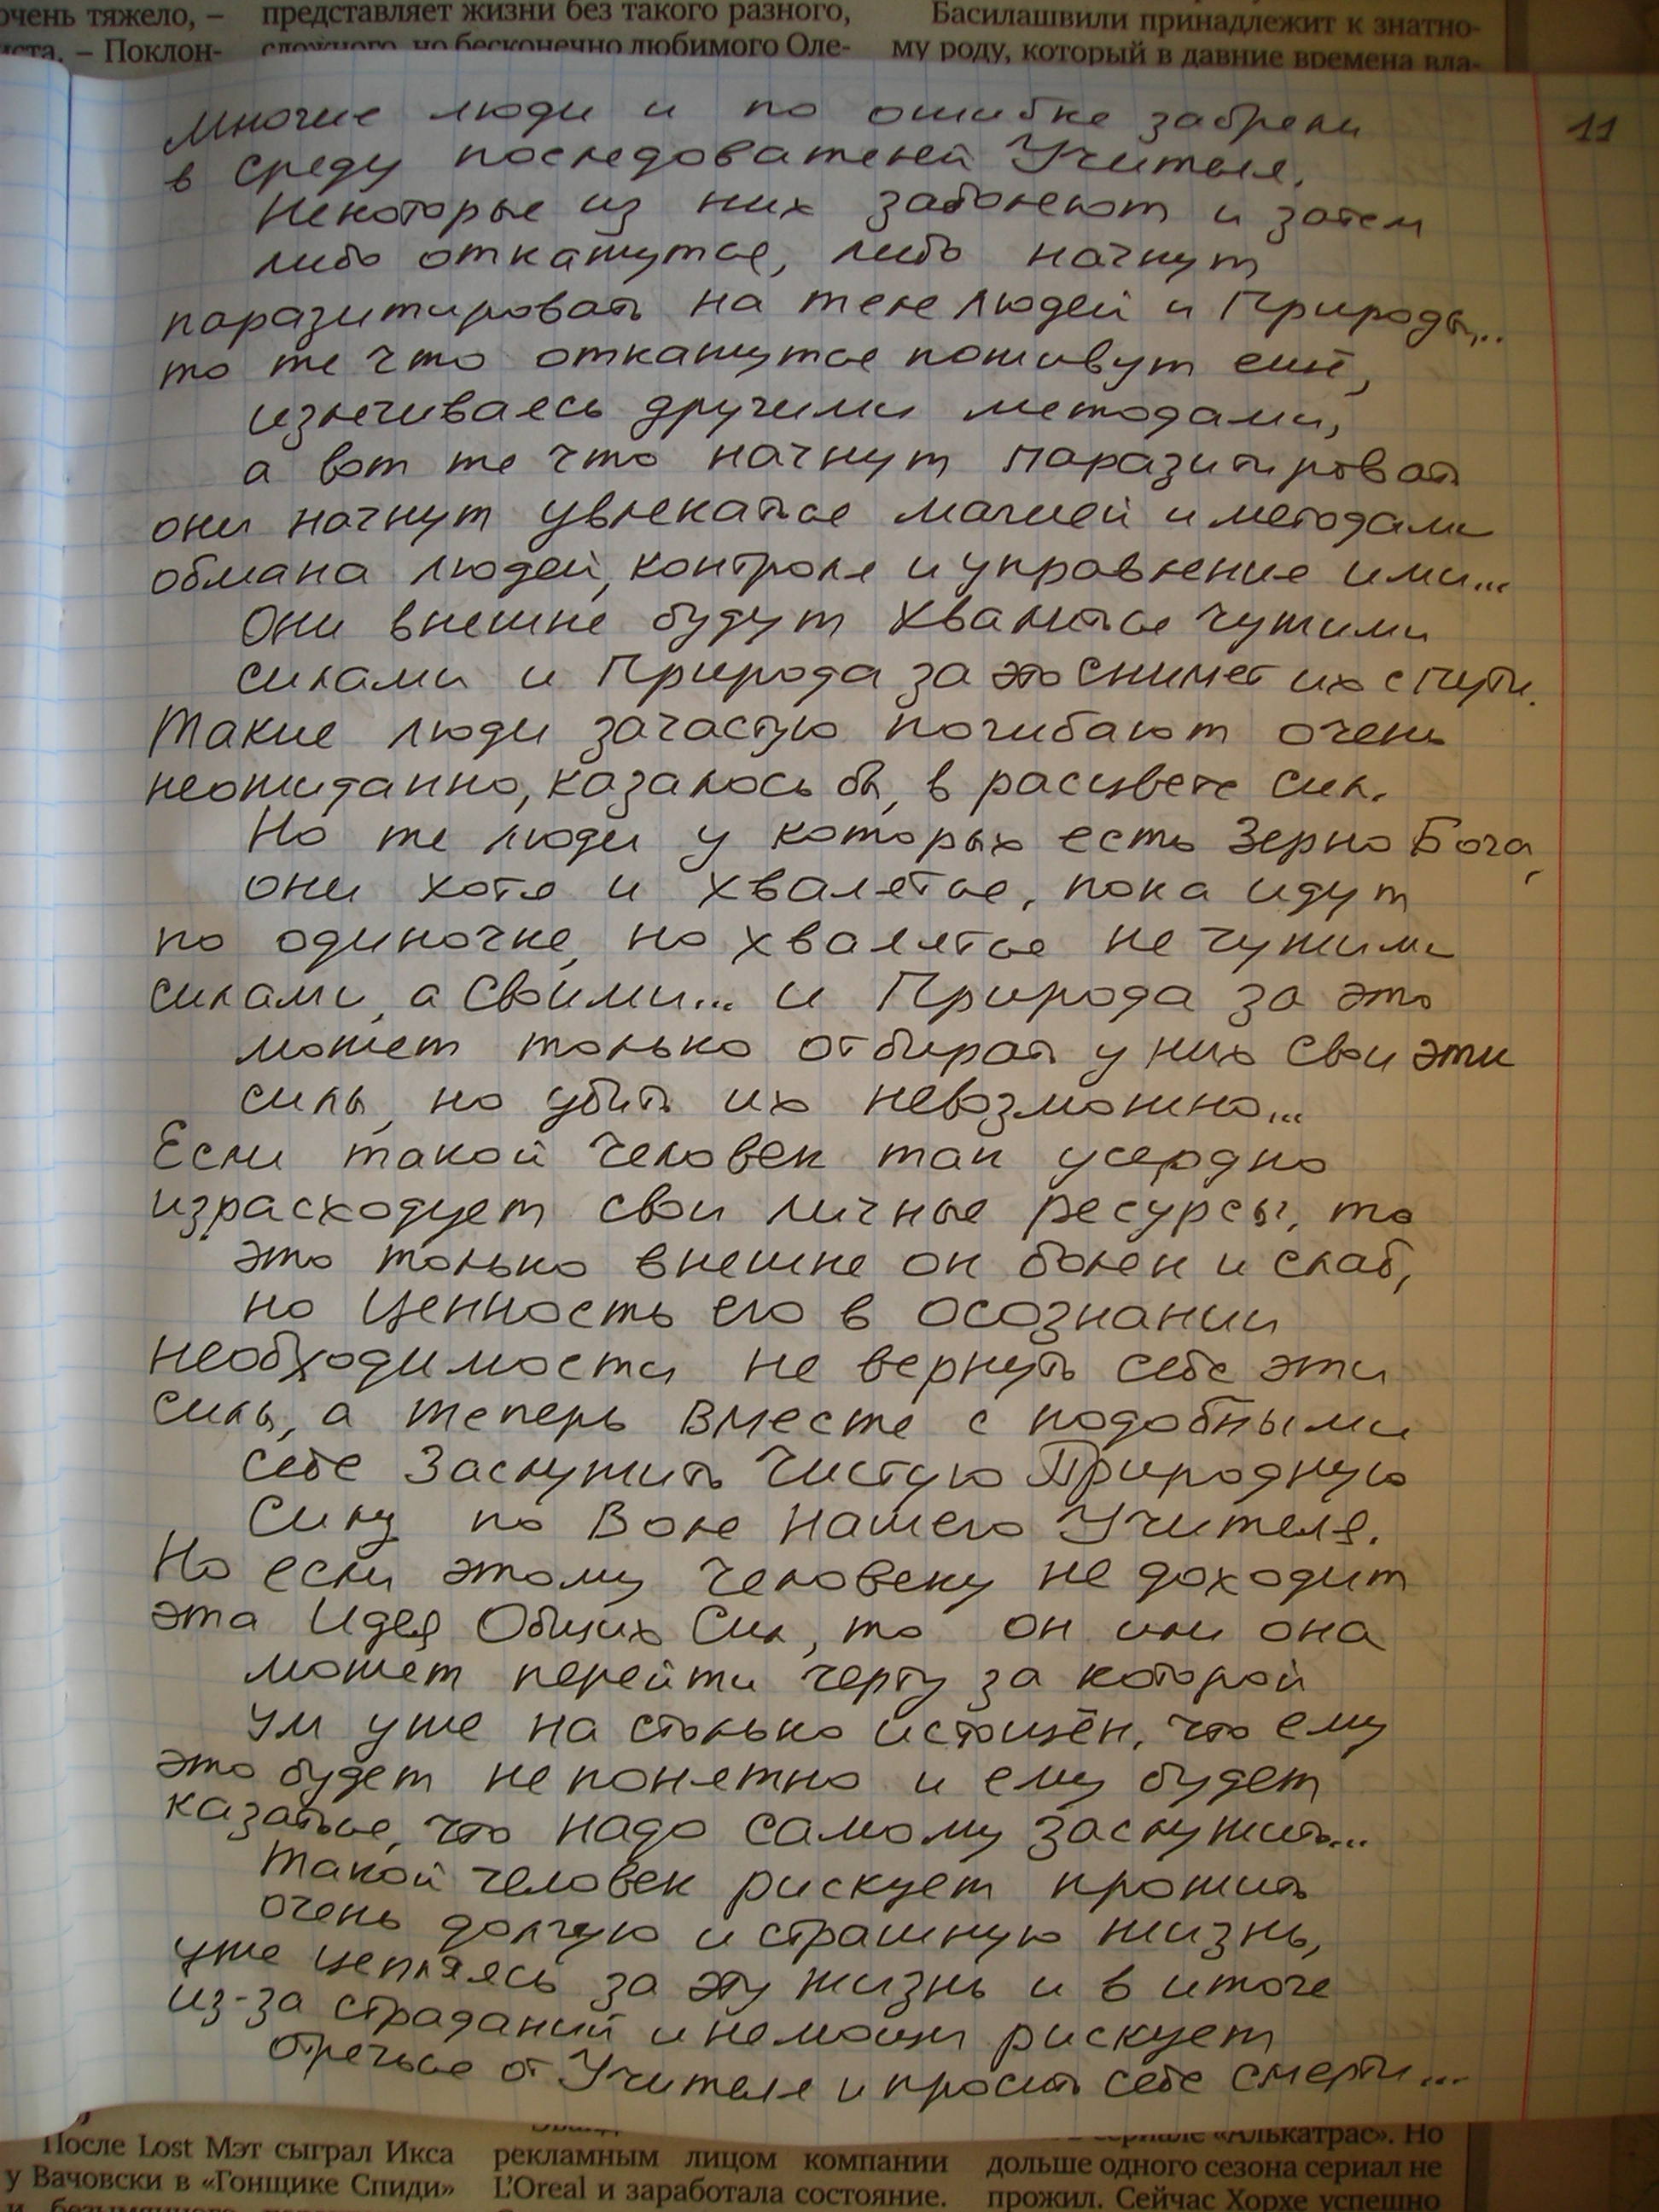 очень тяжело, –
иста. – Поклон-
представляет жизни без такого разного,
сложного, но бесконечно любимого Оле-
Басилашвили принадлежит к знатно-
му роду, который в давние времена вла-
11
Многие люди и по ошибке забрели
в среду последователей Учителя.
Некоторые из них заболеют и затем
либо откажутся, либо начнут
паразитировать на теле людей и Природы...
то те что откажутся поживут ещё,
излечиваясь другими методами,
а вот те что начнут паразитировать
они начнут увлекаться магией и методами
обмана людей, контроля и управление ими...
Они внешне будут хвалиться чужими
силами и Природа за это снимет их с пути.
Такие люди зачастую погибают очень
неожиданно, казалось бы, в расцвете сил.
Но те люди у которых есть Зерно Бога,
они хотя и хвалятся, пока идут
по одиночке, но хвалятся не чужими
силами, а своими... и Природа за это
может только отбирать у них свои эти
силы, но убить их невозможно...
Если такой человек так усердно
израсходует свои личные ресурсы, то
это только внешне он болен и слаб,
но ценность его в осознании
необходимости не вернуть себе эти
силы, а теперь вместе с подобными
себе Заслужить Чистую Природную
Силу по Воле нашего Учителя.
Но если этому человеку не доходит
эта Идея Общих Сил, то он или она
может перейти черту за которой
ум уже на столько истощён, что ему
это будет не понятно и ему будет
казаться, что надо самому заслужить...
Такой человек рискует прожить
очень долгую и страшную жизнь,
уже цепляясь за эту жизнь и в итоге
из-за страданий и немощи рискует
отречься от Учителя и просить себе смерти...
После Lost Мэт сыграл Икса
у Вачовски в «Гонщике Спиди»
и безымянного
рекламным лицом компании
L'Oreal и заработала состояние.
сериале «Алькатрас». Но
дольше одного сезона сериал не
прожил. Сейчас Хорхе успешно